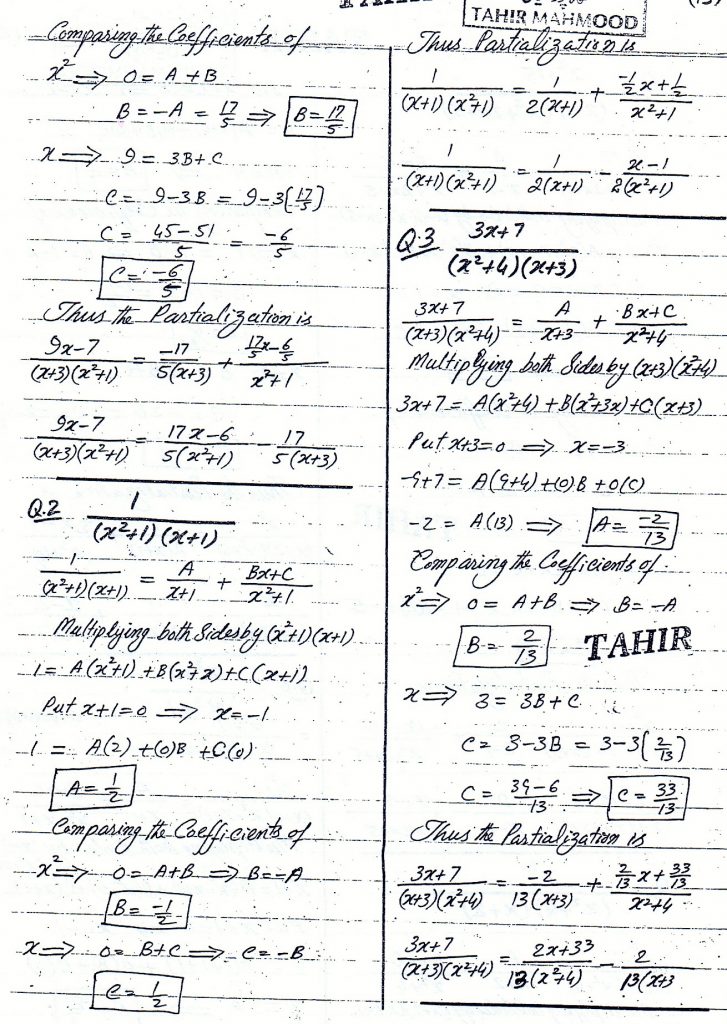 TAHIR MAHMOOD
Comparing the Coefficients of
x² ⟹ 0 = A + B
B = -A = 17/5 ⟹ B = 17/5
x ⟹ 9 = 3B + C
C = 9-3B = 9-3(17/5)
C = 45-51/5 = -6/5
C = -6/5
Thus the Partialization is
9x-7/(x+3)(x²+1) = -17/5(x+3) + 17/5x-6/5/x²+1
9x-7/(x+3)(x²+1) = 17x-6/5(x²+1) - 17/5(x+3)
Q.2 1/(x²+1)(x+1)
1/(x²+1)(x+1) = A/x+1 + Bx+C/x²+1
Multiplying both Sides by (x²+1)(x+1)
1 = A(x²+1) + B(x²+x) + C(x+1)
Put x+1=0 ⟹ x=-1
1 = A(2) + (0)B + C(0)
A = 1/2
Comparing the Coefficients of
x² ⟹ 0 = A+B ⟹ B=-A
B = -1/2
x ⟹ 0 = B+C ⟹ C = -B
C = 1/2
Thus Partialization is
1/(x+1)(x²+1) = 1/2(x+1) + -1/2x+1/2/x²+1
1/(x+1)(x²+1) = 1/2(x+1) - x-1/2(x²+1)
Q.3 3x+7/(x²+4)(x+3)
3x+7/(x+3)(x²+4) = A/x+3 + Bx+C/x²+4
Multiplying both Sides by (x+3)(x²+4)
3x+7 = A(x²+4) + B(x²+3x) + C(x+3)
Put x+3=0 ⟹ x=-3
-9+7 = A(9+4) + (0)B + 0(C)
-2 = A(13) ⟹ A = -2/13
Comparing the Coefficients of
x² ⟹ 0 = A+B ⟹ B = -A
B = 2/13 TAHIR
x ⟹ 3 = 3B+C
C = 3-3B = 3-3(2/13)
C = 39-6/13 ⟹ C = 33/13
Thus the Partialization is
3x+7/(x+3)(x²+4) = -2/13(x+3) + 2/13x+33/13/x²+4
3x+7/(x+3)(x²+4) = 2x+33/13(x²+4) - 2/13(x+3